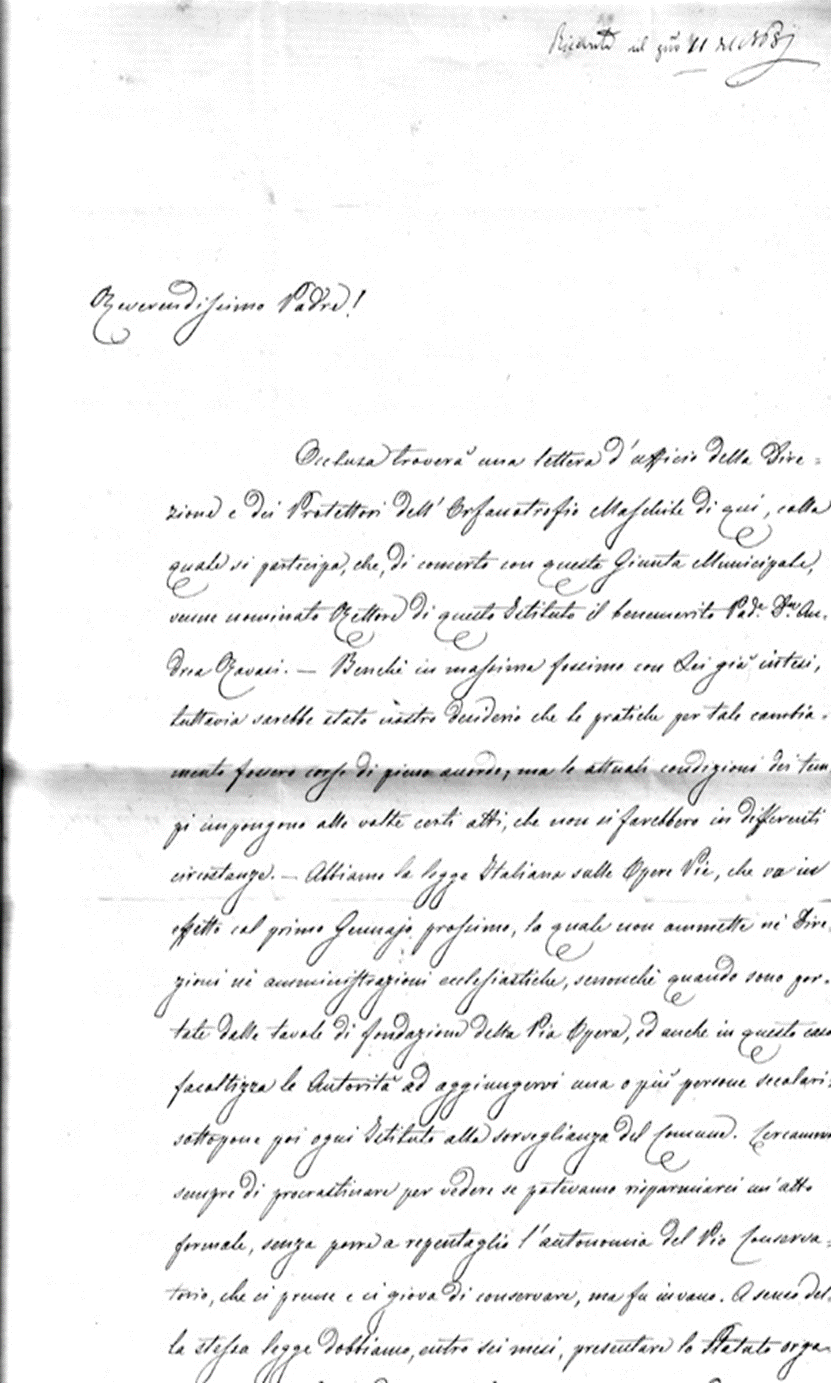 Ricevuta il
Reverendissimo Padre!
Occlusa troverà una lettera d'ufficio della Dire=
zione e dei Protettori dell'Orfanotrofio Maschile di quì, colla
quale si partecipa, che, di concerto con questa Giunta Municipale,
venne nominato Rettore di questo Istituto il benemerito Pad.e D.n An=
drea Ravasi. — Benchè in massima fossimo con Lei già intesi,
tuttavia sarebbe stato nostro desiderio che le pratiche per tale cambia=
mento fossero corse di pieno accordo, ma le attuali condizioni dei tem
pi impongono alle volte certi atti, che non si farebbero in differenti
circostanze. — Abbiamo la legge Italiana sulle Opere Pie, che va in
effetto col primo Gennajo prossimo, la quale non ammette nè Dire=
zioni nè amministrazioni ecclesiastiche, sennonchè quando sono por=
tate dalle tavole di fondazione della Pia Opera, ed anche in questo caso
facoltizza le Autorità ad aggiungervi una o più persone secolari:
sottopone poi ogni Istituto alla sorveglianza del Comune. Cercammo
sempre di procrastinare per vedere se potevamo risparmiarci un'atto
formale, senza porre a repentaglio l'autonomia del Pio Conserva=
torio, che ci preme e ci giova di conservare, ma fu invano. A senso del=
la stessa legge dobbiamo, entro sei mesi, presentare lo Statuto orga=